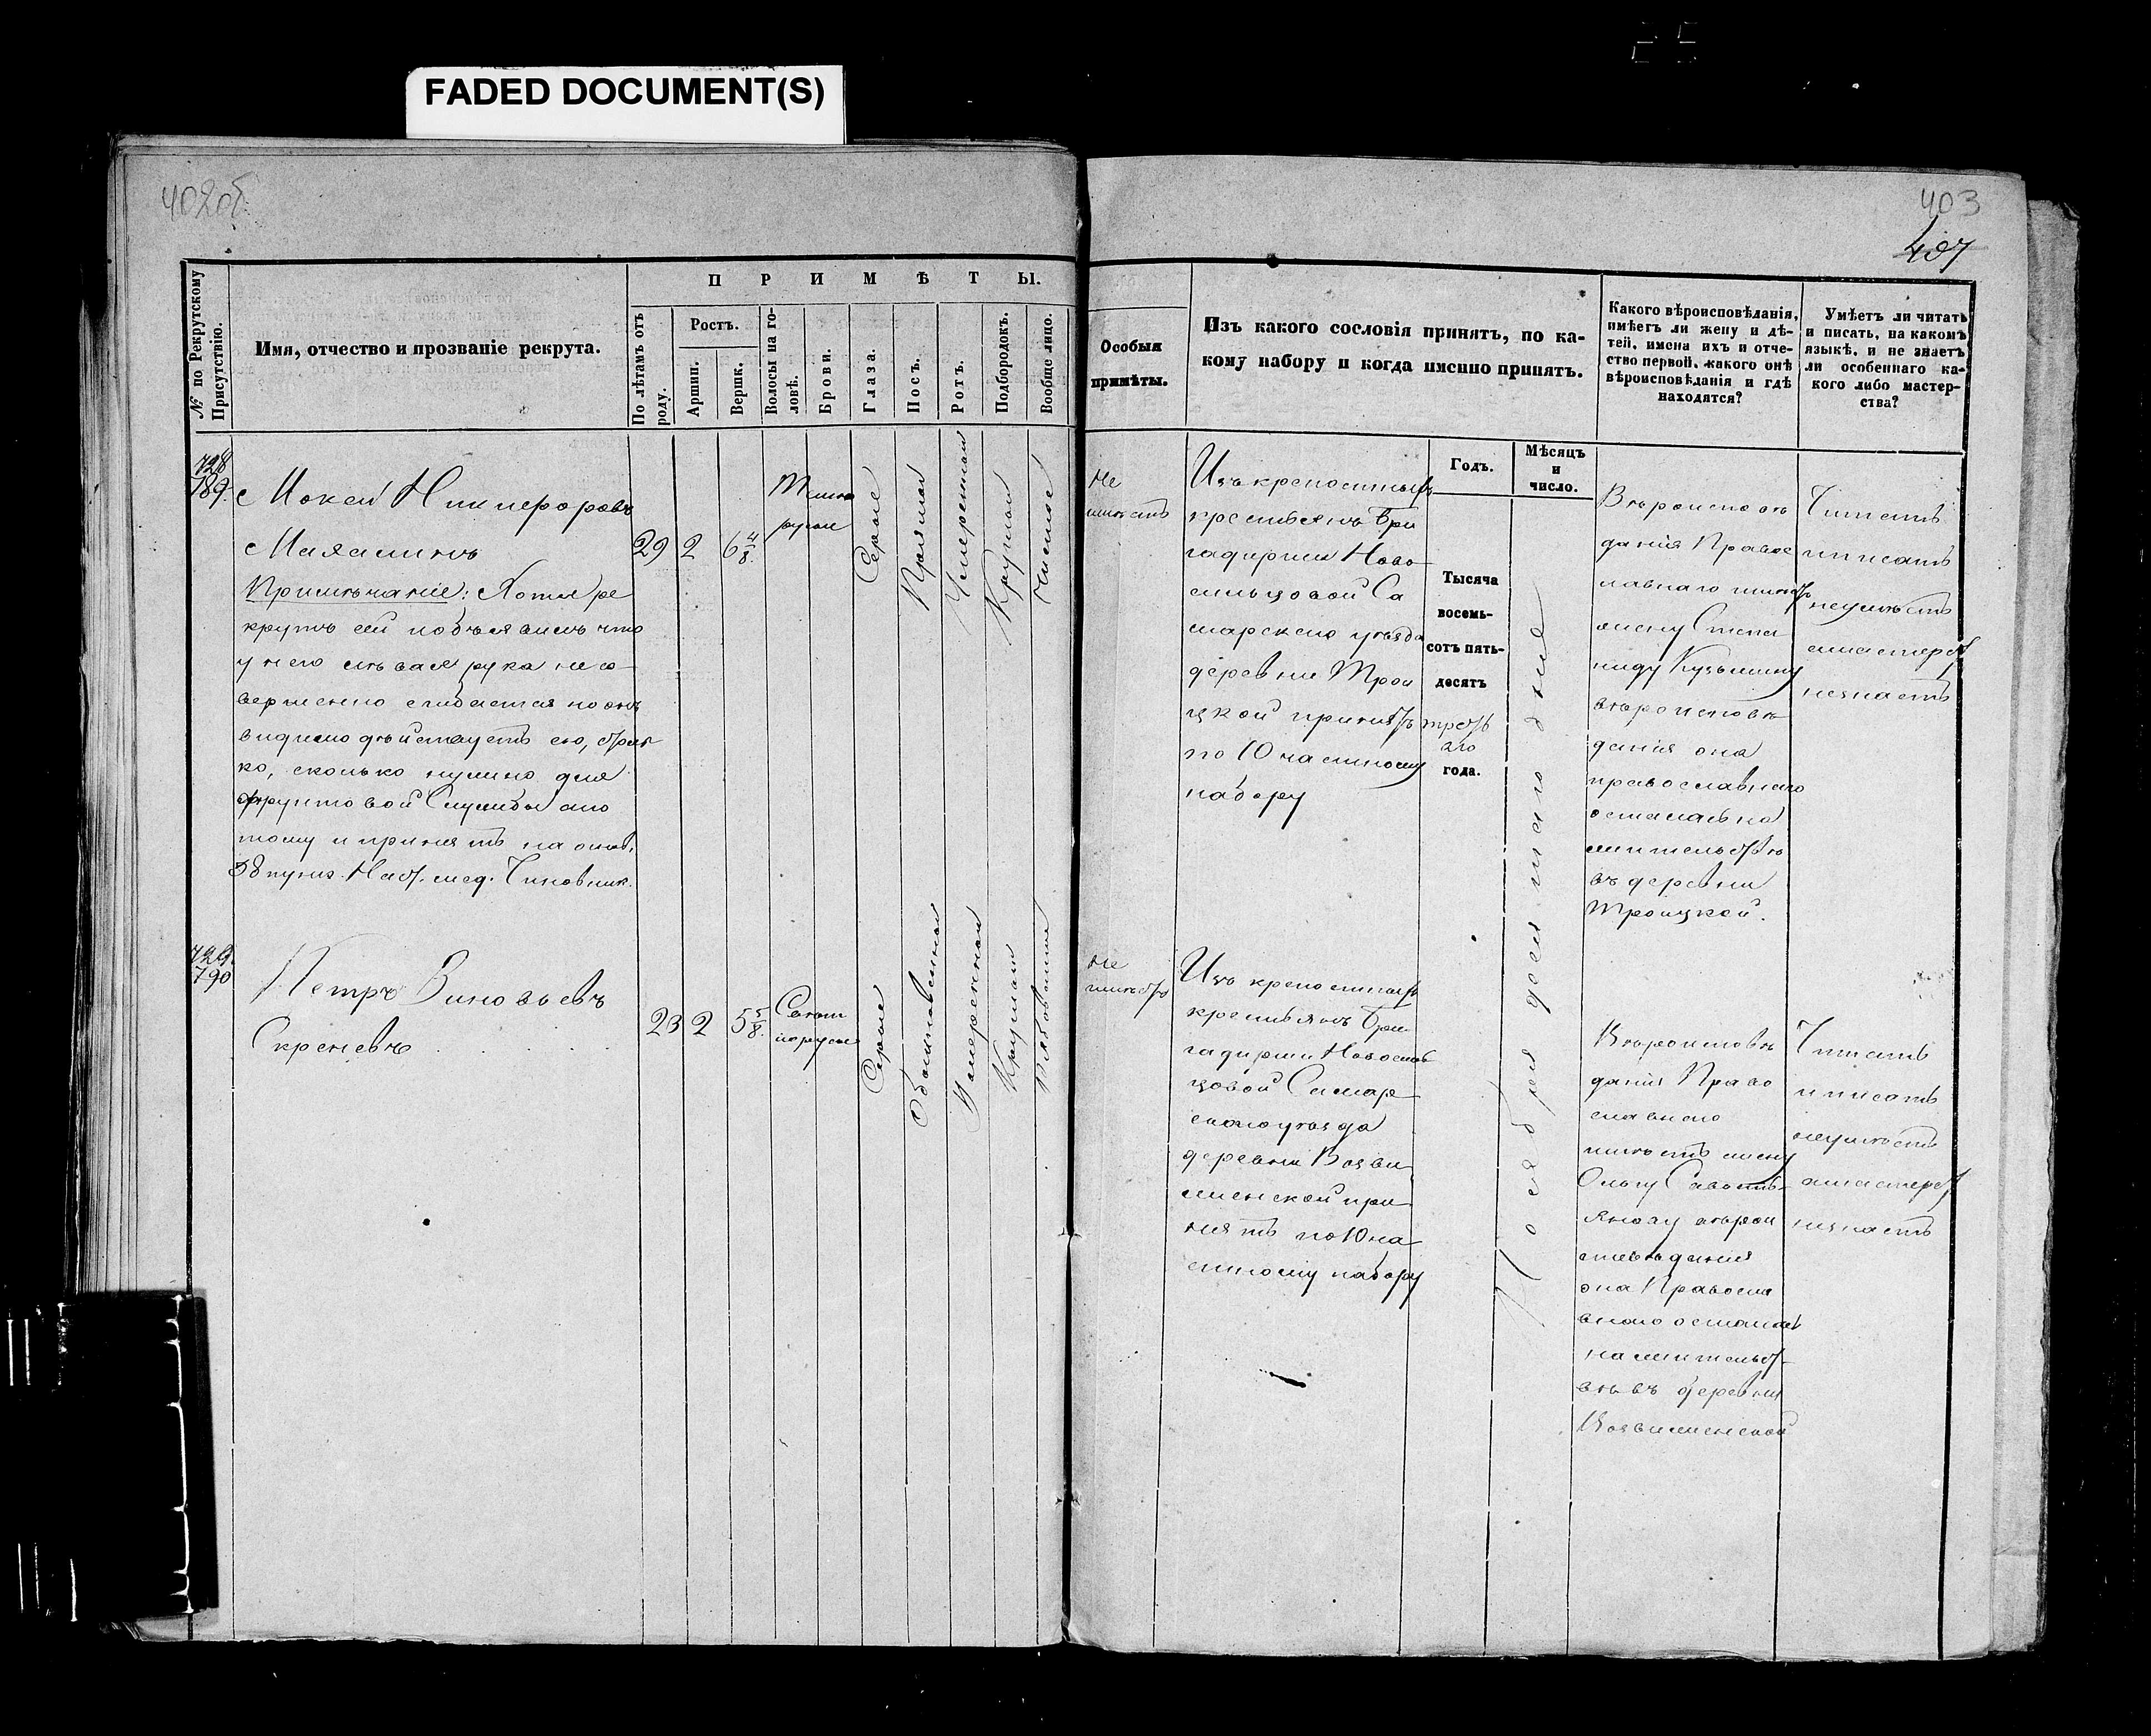 FADED DOCUMENT(S)
402об
403
407
№ по Рекрутскому Присутствію.
Имя, отчество и прозваніе рекрута.
ПРИМѢТЫ.
По лѣтамъ отъ роду.
Ростъ.
Аршин.
Вершк.
Волосы на головѣ.
Брови.
Глаза.
Носъ.
Ротъ.
Подбородокъ.
Вообще лицо.
Особыя
примѣты.
Изъ какого сословія принятъ, по ка-
кому набору и когда именно принятъ.
Какого вѣроисповѣданія,
имѣетъ ли жену и дѣ-
тей, имена ихъ и отче-
ство первой, какого онѣ
вѣроисповѣданія и гдѣ
находятся?
Умѣетъ ли читать
и писать, на какомъ
языкѣ, и не знаетъ
ли особеннаго ка-
кого либо мастер-
ства?
Годъ.
Мѣсяцъ
и
число.
728
789.
Мокей Никифоровъ
Малясинъ
Примѣчаніе: Хотя ре
крутъ сей объявилъ что
у него лѣвая рука несо
вершенно сгибается но онъ
видимо дѣйствуетъ ею, столь
ко, сколько нужно для
фрунтовой Службы апо
тому и принятъ на основ.
38 пунк. Наст. мед. Чиновник.
29
2
6 4/8.
Темно
русые
Серые
Прямой
Умеренный
Круглый
Чистое
Не
имѣетъ
Изъ крепостныхъ
крестьянъ Бри
гадирши Ново
сильцовой Са
марскаго уѣзда
деревни Трои
цкой принятъ
по 10 частному
набору
Тысяча
восемь-
сотъ пять-
десятъ
третья
аго
года.
Ноября десятаго дня
Вѣроисповѣ
данія Правос
лавнаго имѣетъ
жену Степа
ниду Кузьмину
вѣроисповѣ
данія она
православнаго
осталась на
жительствѣ
въ деревни
Троицкой.
Читать
иписать
неумѣетъ
имастерст
незнаетъ
729.
790
Петръ Зиновьевъ
Скреневъ
23
2
5 5/8.
Светл
порусые
Серые
Обыкновенный
Умеренный
Круглый
Не
имѣетъ
Изъ крепостныхъ
крестьянъ Бри
гадирши Новосиль
цовой Самар
скаго уѣзда
деревни Возвы
шенской при
нятъ по 10 ча
стному набору
Вѣроисповѣ
данія Право
славнаго
имѣетъ жену
Ольгу Савость-
янову вѣрои
споведанія
она Правосла
внаго осталась
на жительст
вѣ въ деревни
Возвышенской
Читать
иписать
неумѣетъ
имастерст
незнаетъ